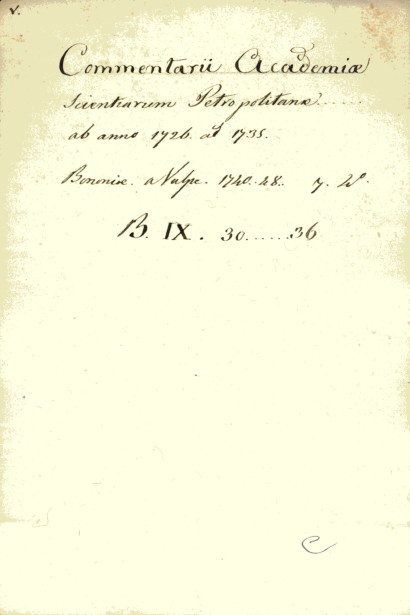 v.
Commentarii Academiæ
Scientiarum Petropolitanæ......
ab anno 1726. ad 1735.
Bononiæ. a Vulpe. 1740..48.. 7. 4º.
B. IX. 30......36
C